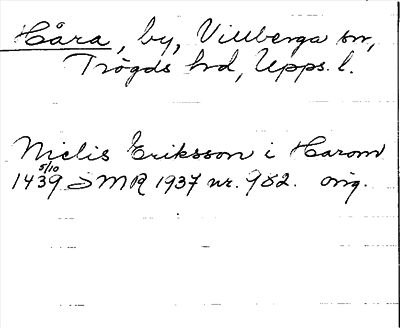 Håra, by, Villberga sn,
Trögds hd, Upps. l.
Niclis Eriksson i Harom
1439 5/10 SMR 1937 nr. 982. orig.